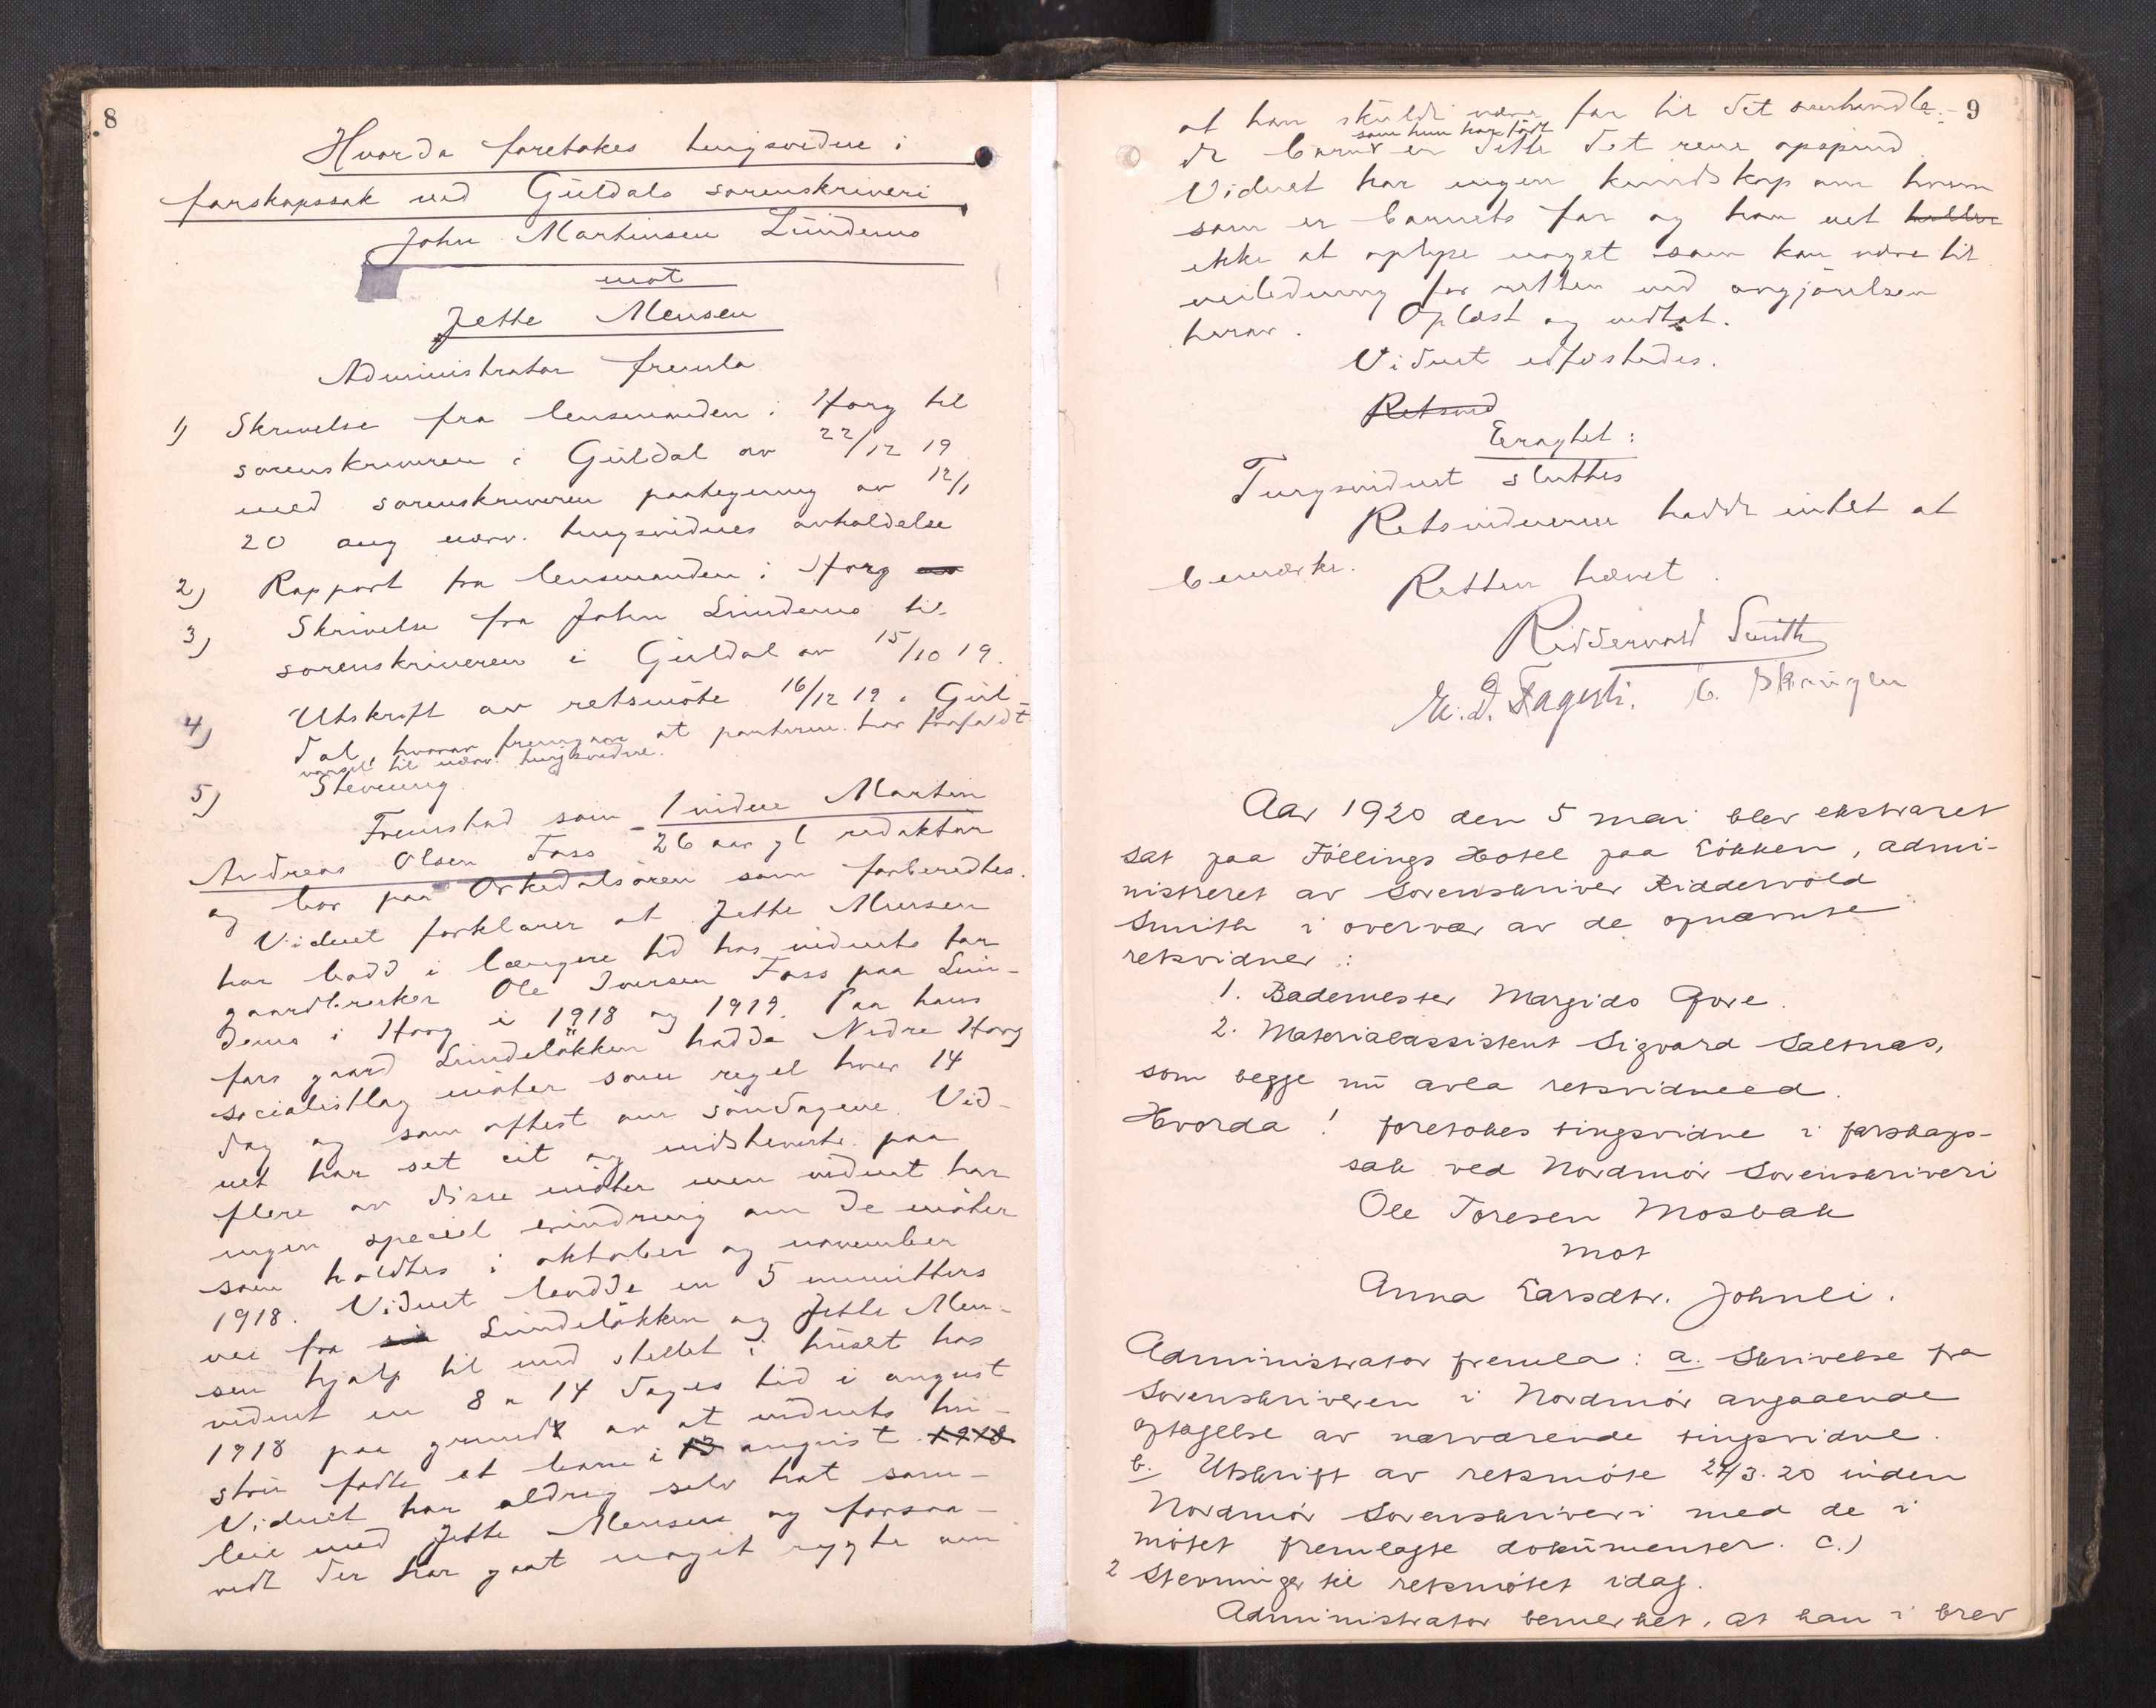 8
Hvorda foretokes tingsvidne i
farskapssak ved Guldals sorenskriveri
John Martinsen Lundemo
mot
Jette Mensen
Administrator fremla
1) Skrivelse fra lensmanden i Horg til
sorenskriveren i Guldal av 22/12 19
med sorenskriveren paategning av 12/1
20 ang nærv. tingsvidnes avholdelse
2) Rapport fra lensmanden i Horg
3) Skrivelse fra John Lundemo til
sorenskriveren i Guldal av 15/10 19.
4) Utskrift av retsmöte 16/12 19 i Gul-
dal, hvorav fremgaar at parterne har frafaldt
varsel til nærv. tingsvidne.
5) Stevning
Fremstod som 1 vidne Martin
Andreas Olsen Foss 26 aar gl redaktör
og bor paa Orkedalsören som forberedtes.
Vidnet forklarer at Jette Mensen
har bodd i længere tid hos vidnets far
gaardbruker Ole Iversen Foss paa Lun-
demo i Horg i 1918 og 1919. Paa hans
fars gaard Lundelökken hadde Nedre Horg
socialistlag möter som regel hver 14
dag og som oftest om söndagene. Vid-
net har set eit og andet paa
flere av disse möter men vidnet har
ingen speciel erindring om de möter
som holdtes i oktober og november
1918. Vidnet bodde en 5 minutters
vei fra Lundelökken og Jette Men-
sen hjalp til med stellet i huset hos
vidnet en 8 a 14 dages tid i august
1918 paa grund av at vidnets hu-
stru födte et barn i 13 august 1918
Vidnet har aldrig selv hat sam-
leie med Jette Mensen og forsaa-
vidt der har gaat noget rygte om
9
at han skulde være far til det omhandle-
de barn som hun har födt er dette det rene opspind
Vidnet har ingen kundskap om hvem
som er barnets far og han vet heller
ikke at oplyse noget som kan være til
veiledning for retten ved avgjörelsen
herav. Oplæst og vedtat.
Vidnet edfæstedes.
Retsvid
Eragtet:
Tingsvidnet sluttes
Retsvidnerne hadde intet at
bemærke.
Retten hævet.
Riddervold Smith
Aar 1920 den 5 mai blev ekstraret
sat paa Föllings Hotel paa Lökken, admi-
nistreret av Sorenskriver Riddervold
Smith i overvær av de opnævnte
retsvidner:
1. Bademester Margido Gore.
2. Materialassistent Sigvard Saltnæs,
som begge nu avla retsvidneed.
Hvorda! foretokes tingsvidne i farskaps-
sak ved Nordmör Sorenskriveri
Ole Toresen Mosbak
mot
Anna Larsdtr. Johnli.
Administrator fremla: a. Skrivelse fra
Sorenskriveren i Nordmör angaaende
optagelse av nærværende tingsvidne.
b. Utskrift av retsmöte 27/3. 20 inden
Nordmör Sorenskriveri med de i
mötet fremlagte dokumenter. c.)
2 Stevninger til retsmötet idag.
Administrator bemerket, at han i brev